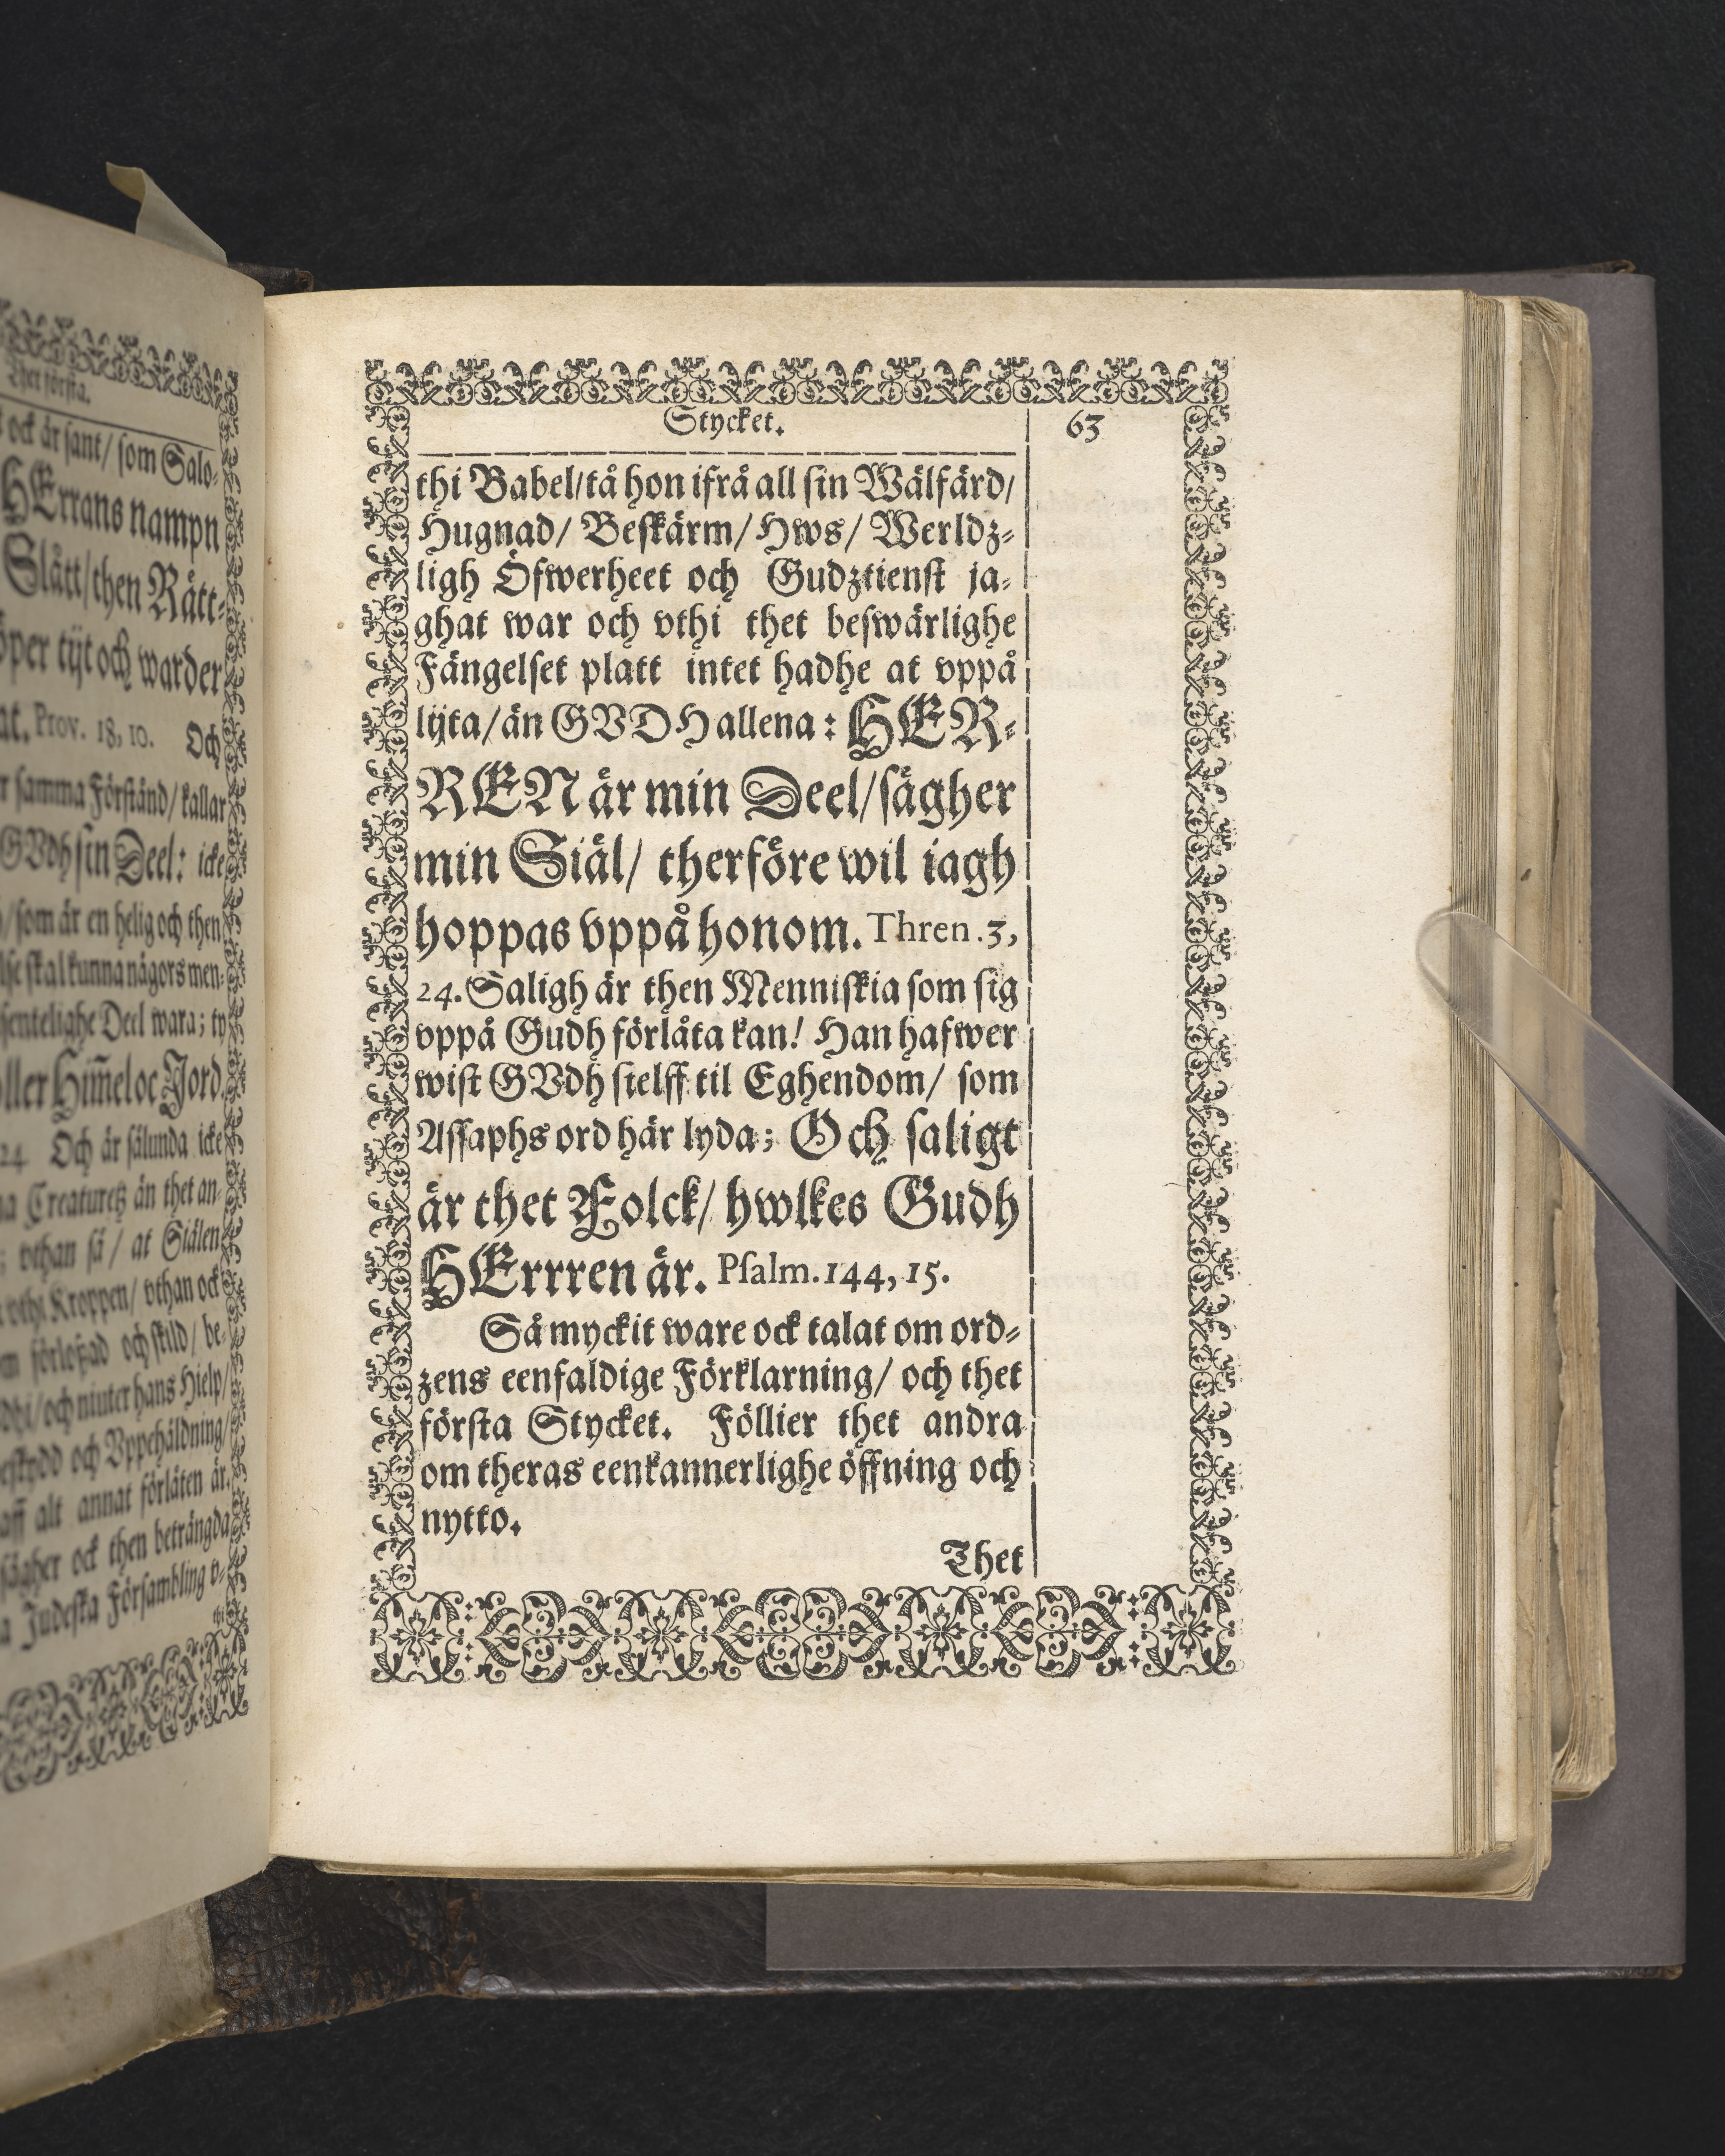 Thet första.
ock är sant/ som Salo-
HErrans nampn
Slått/then Rätt-
tijt och warder
Prov. 18, 10. Och
samma Förstånd/kallar
GVdh sin Deel: icke
/som är en helig och then
skal kunna någors men-
Deel wara; ty
Him̃el oc Jord
24 Och är sålunda icke
Creaturetz än thet an-
; vthan så/ at Siälen
vthi Kroppen/ vthan ock
förloßad och skild/ be-
/och niuter hans Hielp/
och Vppehåldning/
aff alt annat förlåten är.
sägher ock then beträngda
Judeska Försambling v-
thi
Stycket. 63
thi Babel/tå hon ifrå all sin Wälfärd/
Hugnad/ Beskärm/Hws/ Werldz-
ligh Öfwerheet och Gudztienst ja-
ghat war och vthi thet beswärlighe
Fängelset platt intet hadhe at vppå
lijta/än GVDH allena: HER-
REN är min Deel/sägher
min Siäl/ therföre wil iagh
hoppas vppå honom. Thren. 3,
24. Saligh är then Menniskia som sig
vppå Gudh förlåta kan! Han hafwer
wist GVdh sielff til Eghendom/ som
Assaphs ord här lyda; Och saligt
är thet Folck/ hwlkes Gudh
HErrren är. Psalm. 144, 15.
Så myckit ware ock talat om ord-
zens eenfaldige Förklarning/ och thet
första Stycket. Föllier thet andra
om theras eenkannerlighe öffning och
nytto.
Thet